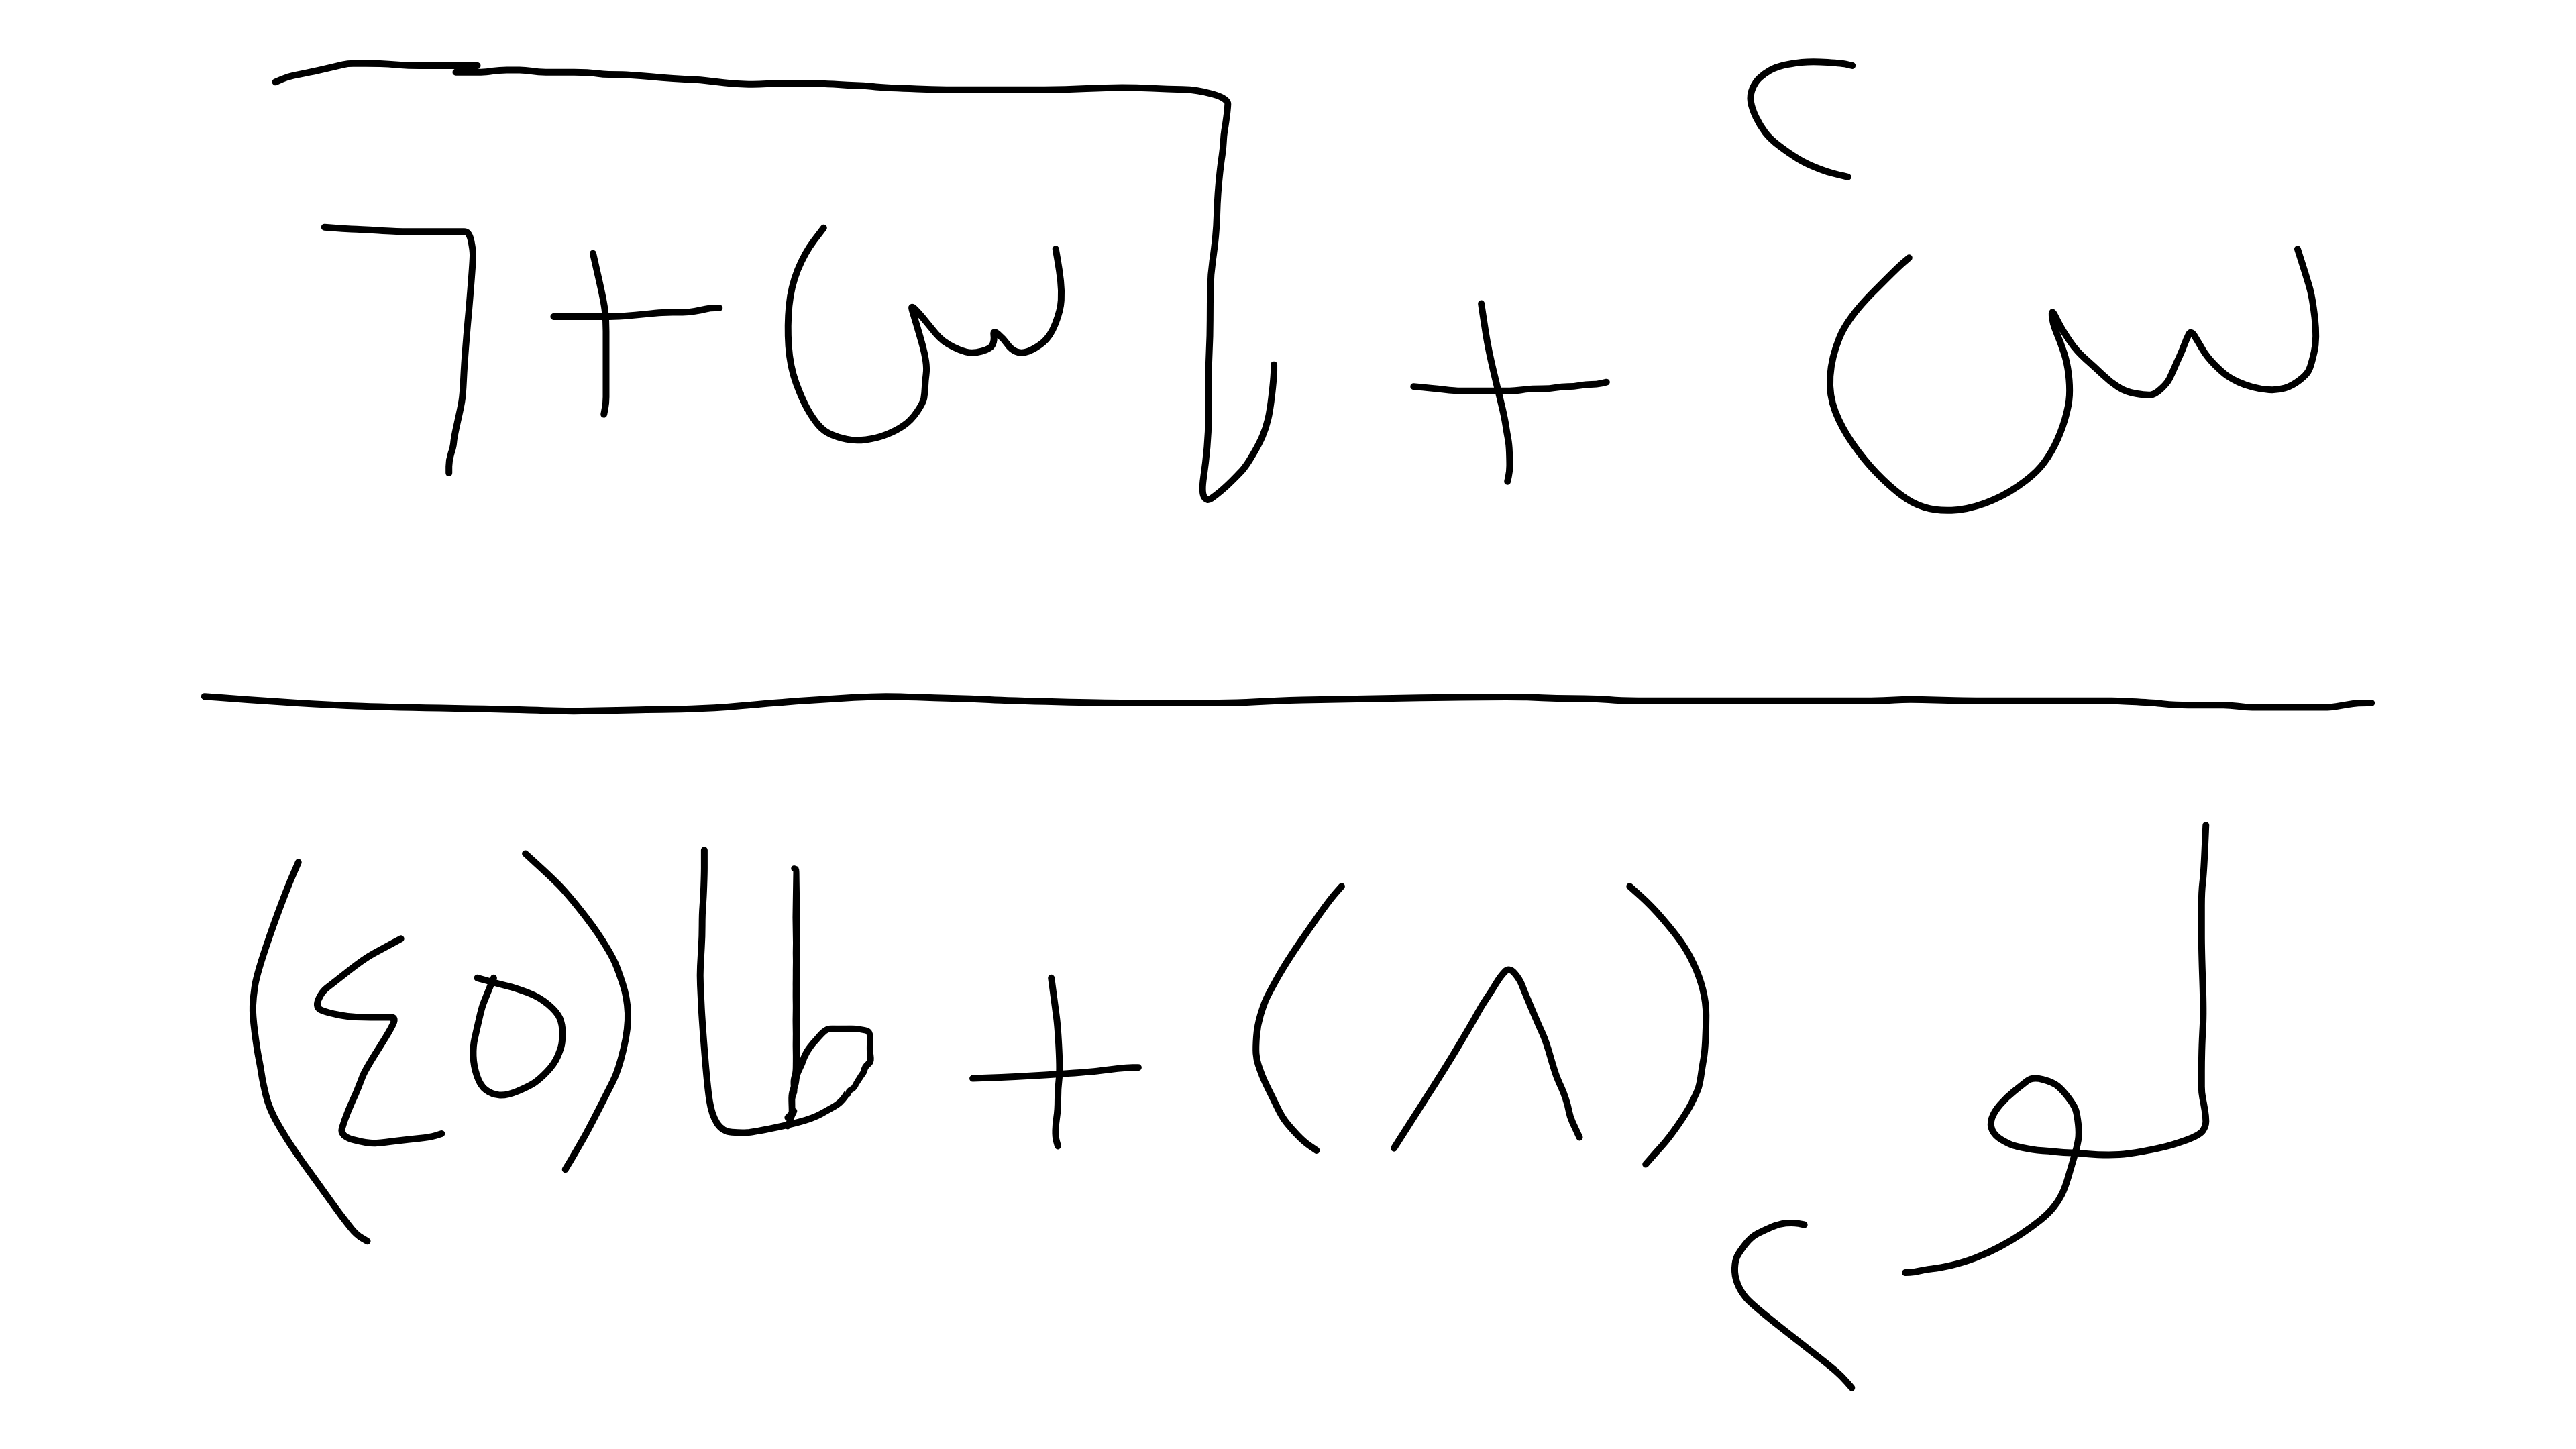 س^٢ + √(س + ٦)
لو_٢ (٨) + طا (٤٥)